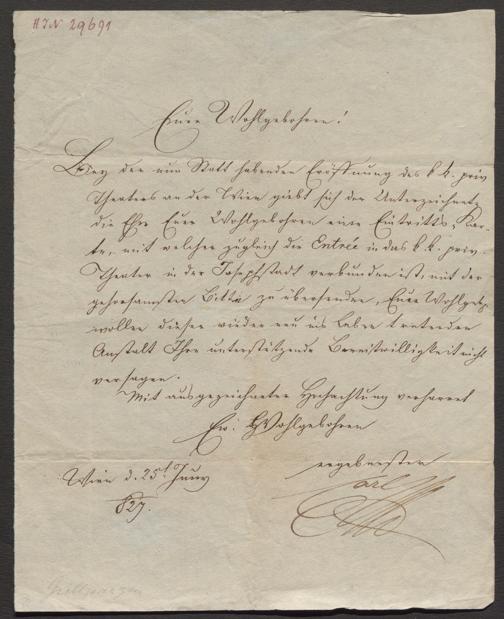 HIN 29691
Euer Wohlgebohren!
Bey der nun Statt habenden Eröffnung des k. k. priv.
Theaters an der Wien giebt sich der Unterzeichnete
die Ehre Euer Wohlgebohren eine Eintritts-Kar-
te, mit welcher zugleich die Entrée in das k. k. priv.
Theater in der Josephstadt verbunden ist, mit der
gehorsamsten Bitte zu übersenden, Euer Wohlgeb.
wollen dieser wieder neu ins Leben tretenden
Anstalt Ihre unterstützende Bereitwilligkeit nicht
versagen.
Mit ausgezeichneter Hochachtung verharret
Ew. Wohlgebohren
ergebenster
Carl
Wien d. 25t. Juny
827.
Grillparzer